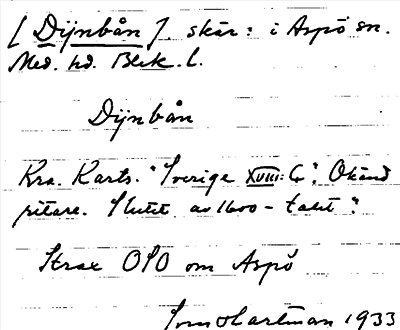 [ Dijnbån ]. skär: i Aspö sn.
Med. hd. Blek. l.
Dijnbån
Kra. Kartv. "Sverige XVIII: 6", Okänd
ritare. Slutet av 1600-talet:
Strax OSO om Aspö
Hartman 1933